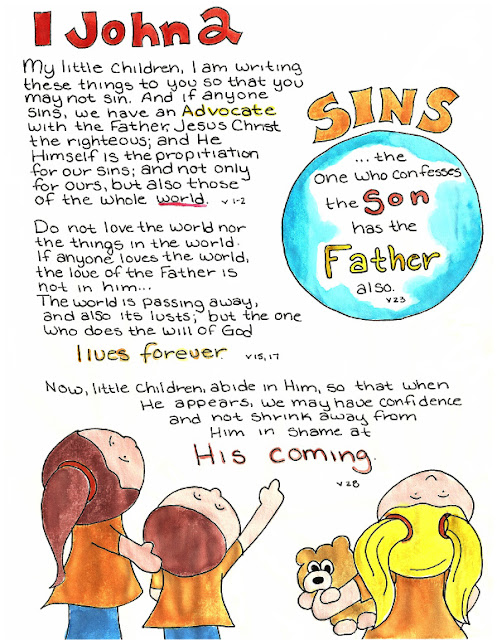 I John 2
My little children, I am writing
these things to you so that you
may not sin. And if anyone
sins, we have an Advocate
with the Father, Jesus Christ
the righteous; and He
Himself is the propitiation
for our sins; and not only
for ours, but also those
of the whole world. v 1-2
SINS
... the
one who confesses
the Son
has the
Father
also.
v 23
Do not love the world nor
the things in the world.
If anyone loves the world,
the love of the Father is
not in him...
The world is passing away,
and also its lusts; but the one
who does the will of God
lives forever. v 15, 17
Now, little children, abide in Him, so that when
He appears, we may have confidence
and not shrink away from
Him in shame at
His coming.
v 28